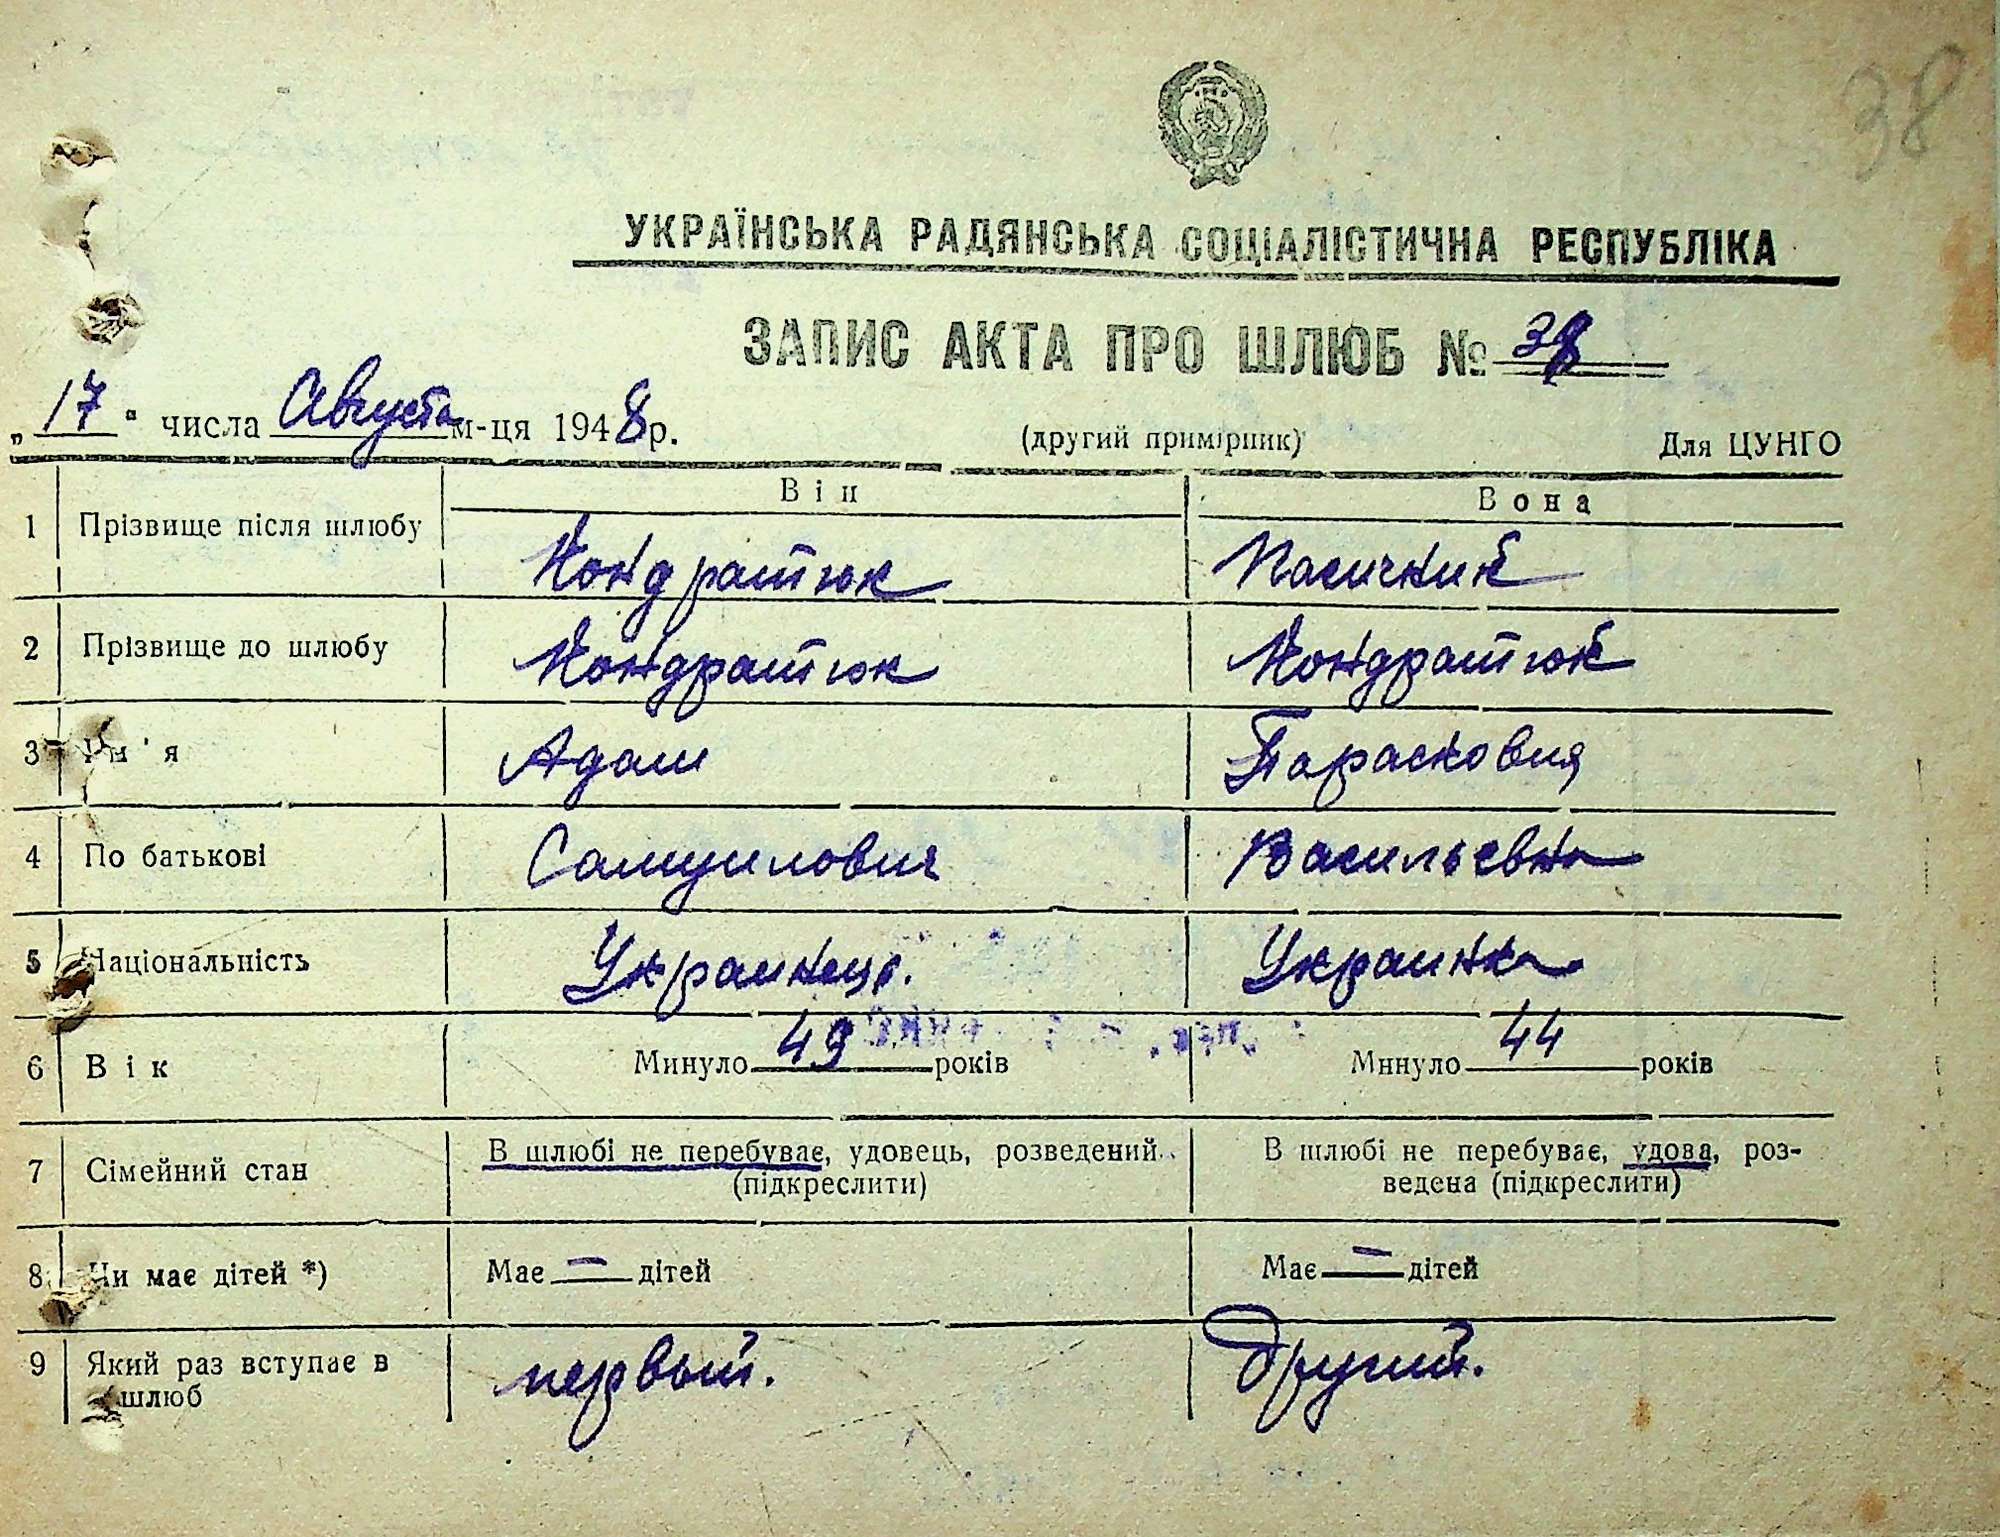 38
УКРАЇНСЬКА РАДЯНСЬКА СОЦІАЛІСТИЧНА РЕСПУБЛІКА
ЗАПИС АКТА ПРО ШЛЮБ № 38
„17" числа Августа м-ця 1948 р. (другий примірник) Для ЦУНГО
Він Вона
1 Прізвище після шлюбу Кондратюк Пасичник
2 Прізвище до шлюбу Кондратюк Кондратюк
3 Ім'я Адам Парасковия
4 По батькові Самуилович Васильевна
5 Національність Украинец. Украинка
6 Вік Минуло 49 років Минуло 44 років
7 Сімейний стан В шлюбі не перебуває, удовець, розведений (підкреслити) В шлюбі не перебуває, удова, роз-
ведена (підкреслити)
8 Чи має дітей *) Має — дітей Має — дітей
9 Який раз вступає в первый. Другий.
шлюб